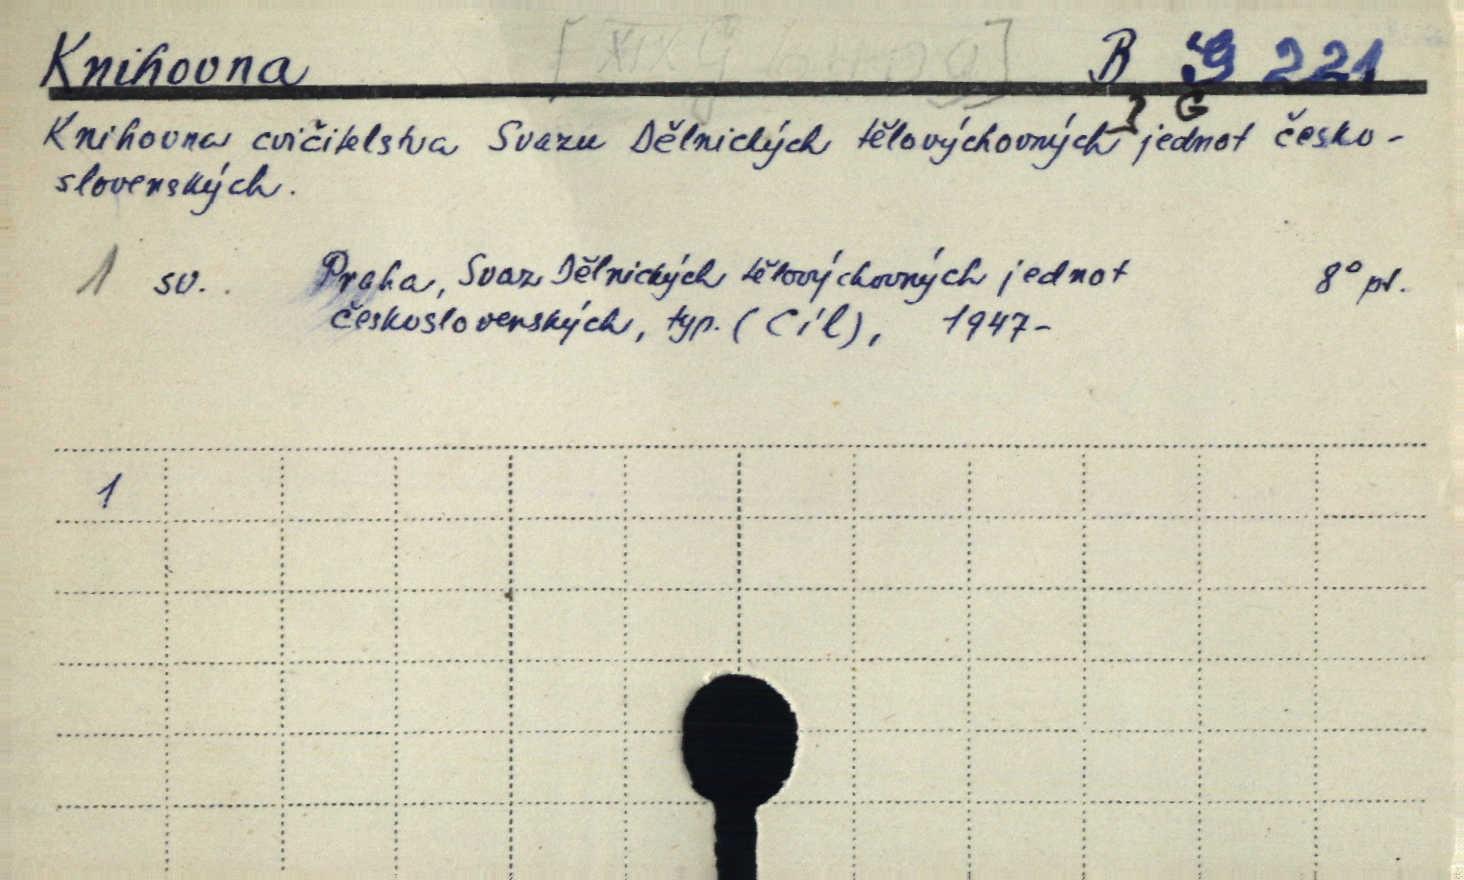 Knihovna B 221
G
Knihovna cvičitelstva Svazu Dělnických tělovýchovných jednot česko-
slovenských.
1 sv. Praha, Svaz Dělnických tělovýchovných jednot 8° pl.
československých, typ. (Cíl), 1947-
1